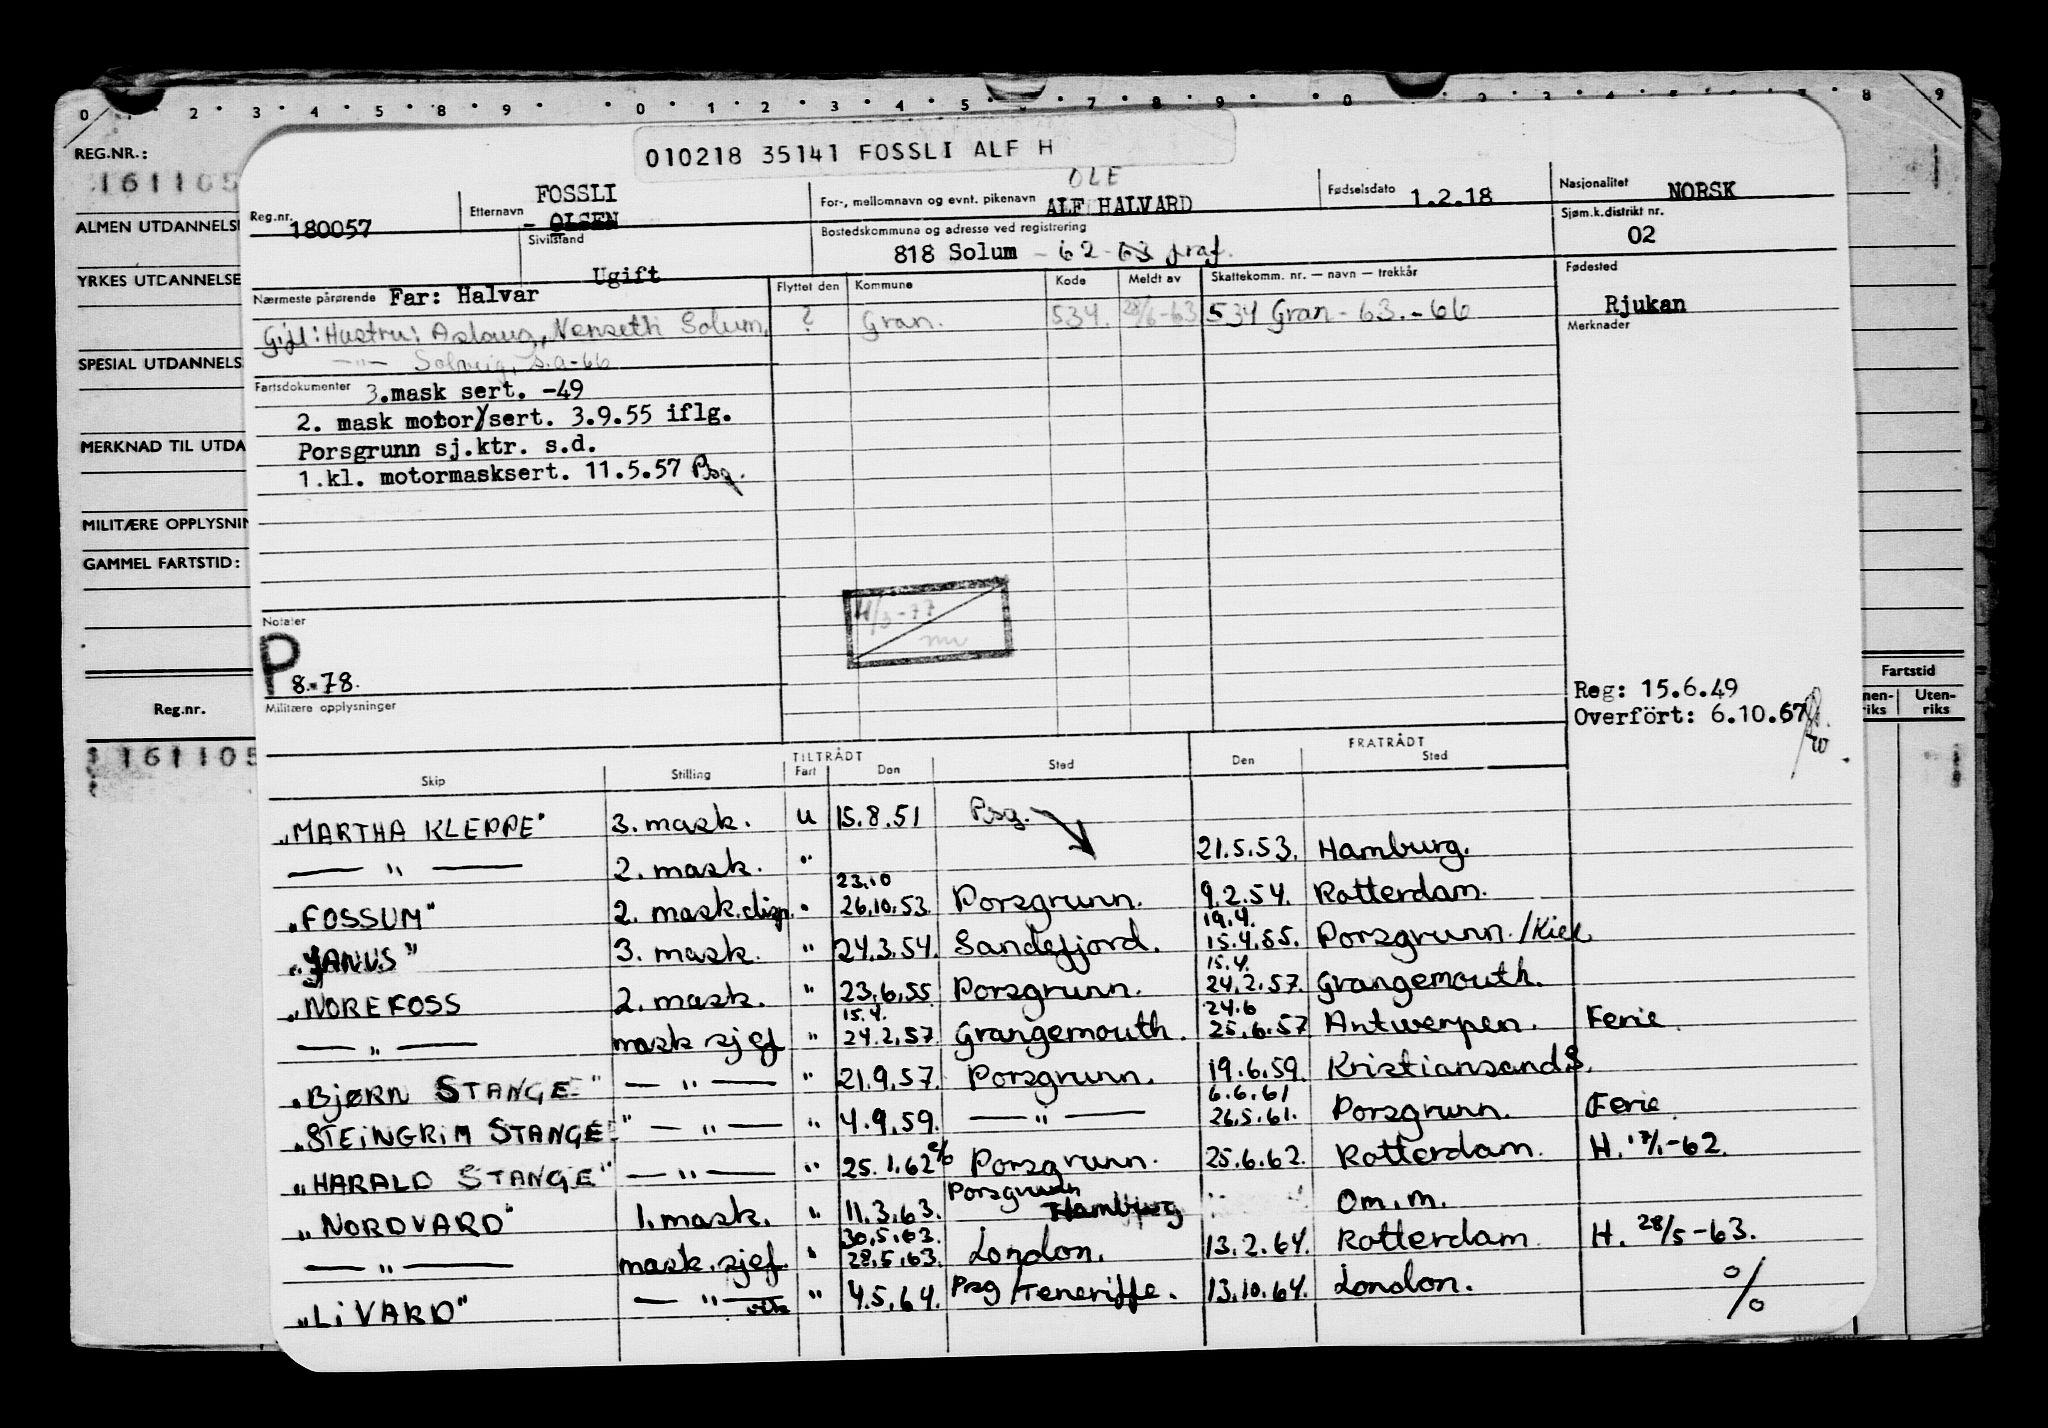 0 2 3 4 5 8 9 0 1 2 3 4 5 7 8 9 0 8 9
REG.NR.:
161105
ALMEN UTDANNELS
YRKES UTDANNELSE
SPESIAL UTDANNELS
MERKNAD TIL UTDA
MILITÆRE OPPLYSNIN
GAMMEL FARTSTID:
Reg.nr.
161105
Fartstid
nen- Uten-
riks riks
010218 35141 FOSSLI ALF H
OLE
Reg.nr. 180057 Etternavn FOSSLI - OLSEN For-, mellomnavn og evnt. pikenavn ALF HALVARD Fødselsdato 1.2.18 Nasjonalitet NORSK
Sivilstand Ugift Bostedskommune og adresse ved registrering 818 Solum - 62-63 fraf. Sjøm.k.distrikt nr. 02
Nærmeste pårørende Far: Halvar Flyttet den Kommune Kode Meldt av Skattekomm. nr. — navn — trekkår Fødested Rjukan
Gift: Hustru: Aslaug, Nenseth Solum, ? Gran. 534. 28/6-63 534 Gran - 63.-66 Merknader
— " — Solveig, s.a-66
Fartsdokumenter 3.mask sert. -49
2. mask motor/sert. 3.9.55 iflg.
Porsgrunn sj.ktr. s.d.
1.kl. motormasksert. 11.5.57 Psg.
Notater
P 8.-78.
Militære opplysninger
Reg: 15.6.49
Overført: 6.10.67
TILTRÅDT FRATRÅDT
Skip Stilling Fart Den Sted Den Sted
"MARTHA KLEPPE" 3. mask. U 15.8.51 Psg.
— " — 2. mask. " 21.5.53. Hamburg.
23.10
"FOSSUM" 2. mask.disp. " 26.10.53. Porsgrunn. 9.2.54. Rotterdam.
19.4.
"JANUS" 3. mask. " 24.3.54. Sandefjord. 15.4.55. Porsgrunn./Kiel
15.4.
"NOREFOSS 2. mask. " 23.6.55. Porsgrunn. 24.2.57. Grangemouth.
15.4. 24.6
— " — mask sjef " 24.2.57. Grangemouth. 25.6.57 Antwerpen. Ferie.
"BJØRN STANGE" — " — " 21.9.57. Porsgrunn. 19.6.59. Kristiansand S.
6.6.61
"STEINGRIM STANGE" — " — " 4.9.59. — " — 26.5.61. Porsgrunn. Ferie.
"HARALD STANGE" — " — " 25.1.62 Porsgrunn. 25.6.62. Rotterdam. H. 17/1-62.
Porsgrunn
"NORDVARD" 1. mask. " 11.3.63. Hamburg Om.m.
30.5.63.
— " — mask.sjef. " 28.5.63. London. 13.2.64. Rotterdam. H. 28/5-63.
"LIVARD" — " — " 4.5.64. Psg/Teneriffe. 13.10.64. London. %